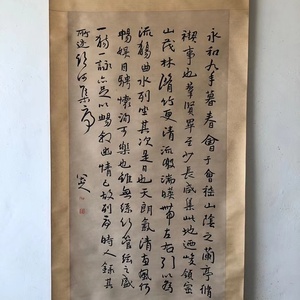 永和九年暮春會于會稽山陰之蘭亭脩
禊事也羣賢畢至少長咸集此地迺峻領崇
山茂林脩竹更清流激湍暎帶左右引以為
流觴曲水列坐其次是日也天朗氣清惠風和
暢娛目騁懷洵可樂也雖無絲竹管絃之盛
一觴一詠亦足以暢敘幽情已故列序時人錄其
所述臨河集序